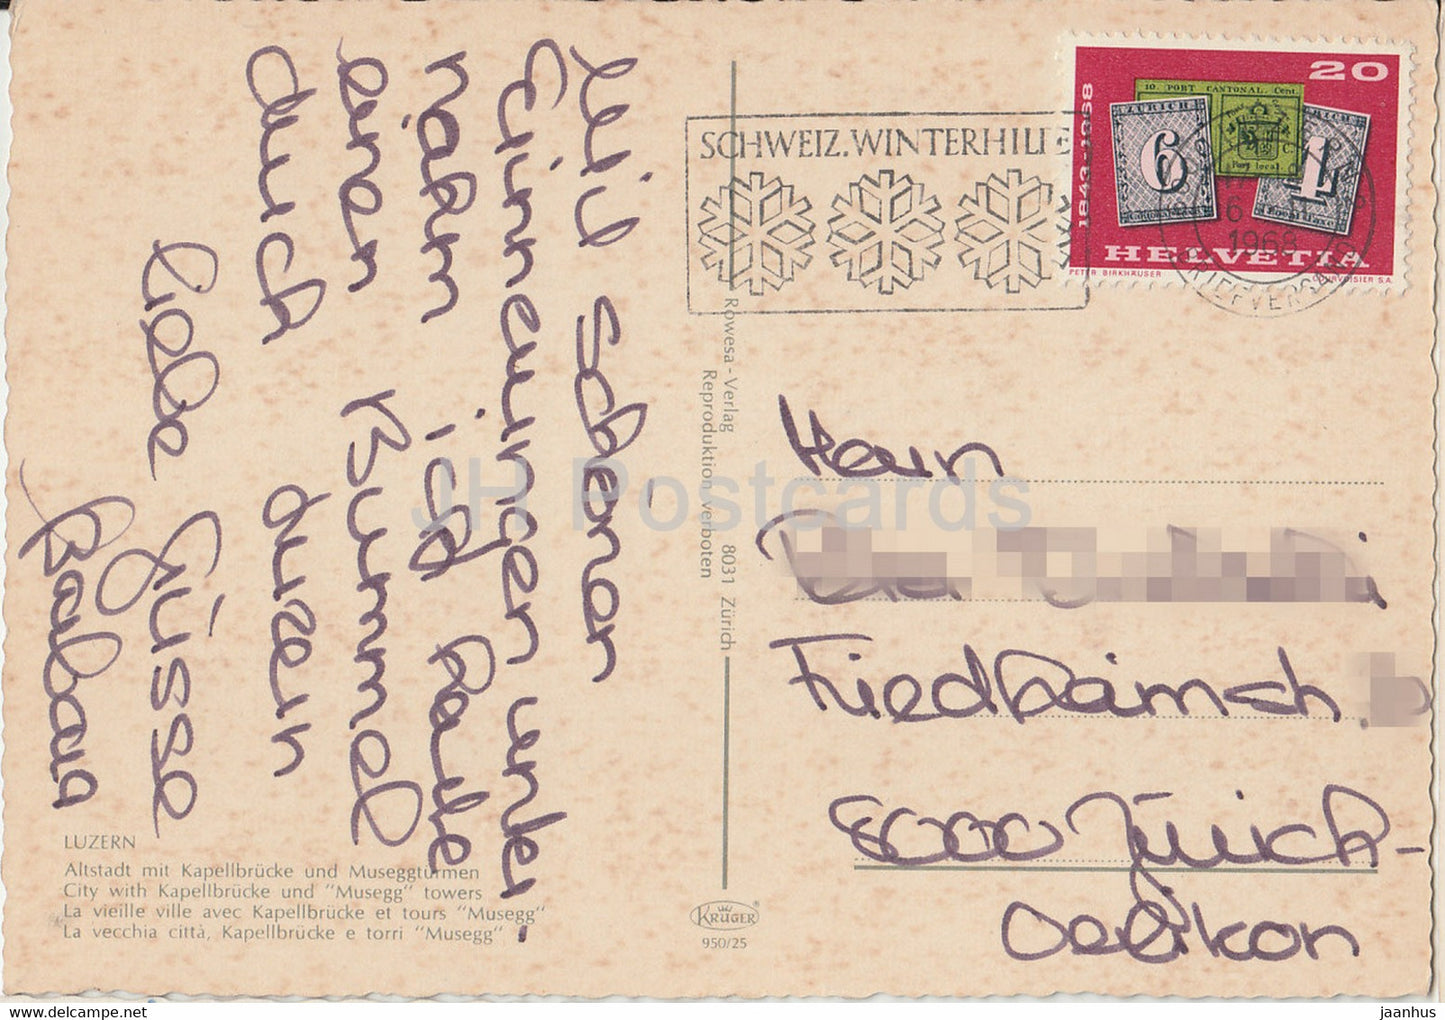 Mit schönen
Erinnerungen unter-
nahm ich heute
einen Bummel
durch Luzern
Liebe Grüsse
Barbara
LUZERN
Altstadt mit Kapellbrücke und Museggtürmen
City with Kapellbrücke und "Musegg" towers
La vieille ville avec Kapellbrücke et tours "Musegg"
La vecchia città, Kapellbrücke e torri "Musegg"
Rowesa - Verlag 8031 Zürich
Reproduktion verboten
KRÜGER
950/25
SCHWEIZ. WINTERHILFE
20
1843-1968
10. PORT CANTONAL. Cent.
ZÜRICH
6
Port local
HELVETIA
PETER BIRKHÄUSER
COURVOISIER S.A.
16
1968
BRIEFVERSAND
Herrn
Friedheimstr.
8000 Zürich-
Oerlikon
JH Postcards
jaanhus